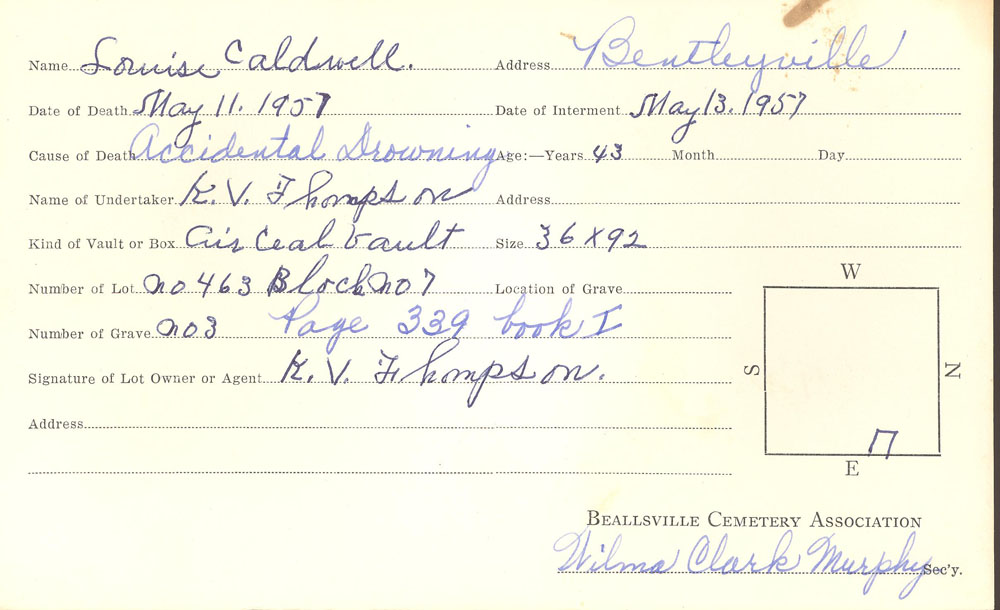 Name Louise Caldwell. Address Bentleyville
Date of Death May 11. 1957 Date of Interment May 13. 1957
Cause of Death Accidental Drowning Age:—Years 43 Month Day
Name of Undertaker K. V. Thompson Address
Kind of Vault or Box Air Ceal Vault Size 36 x 92
Number of Lot no 463 Block no 7 Location of Grave
Number of Grave no 3 Page 339 book I
Signature of Lot Owner or Agent K. V. Thompson.
Address
W
S
N
E
BEALLSVILLE CEMETERY ASSOCIATION
Wilma Clark Murphy Sec'y.